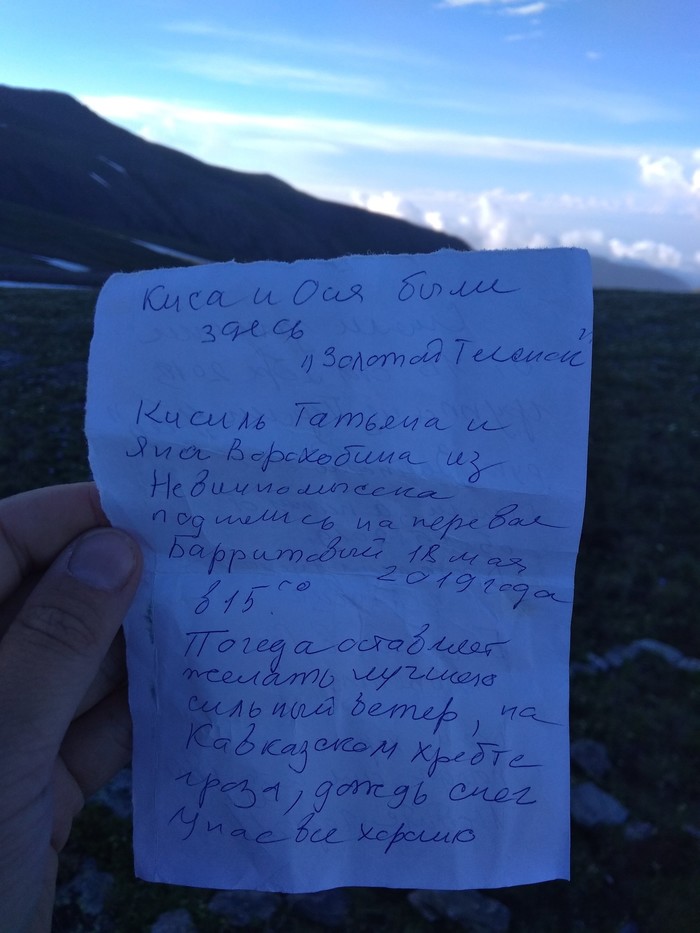 Киса и Ося были
здесь
"Золотой Теленок"
Кисиль Татьяна и
Яна Ворохобина из
Невинномысска
поднялись на перевал
Барритовый 18 мая
2019 года
в 15.00
Погода оставляет
желать лучшего
сильный ветер, на
Кавказском хребте
гроза, дождь снег
У нас все хорошо